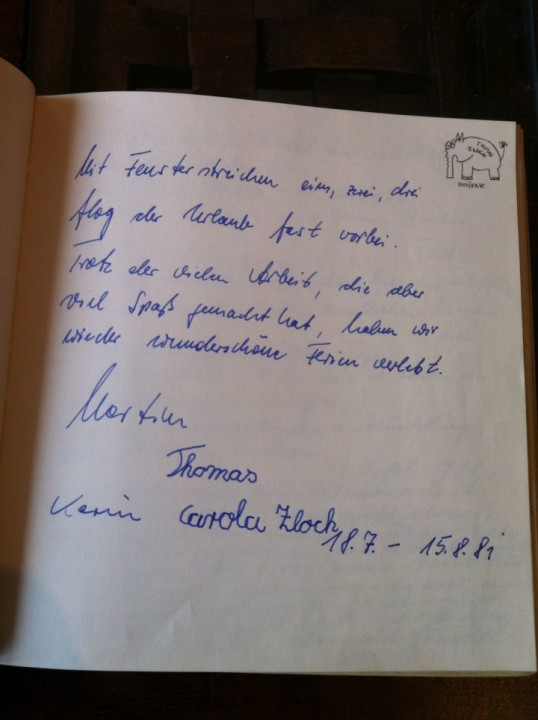 Mit Fensterstreichen eins, zwei, drei
flog der Urlaub fast vorbei.
Trotz der vielen Arbeit, die aber
viel Spaß gemacht hat, haben wir
wieder wunderschöne Ferien verlebt.
Martin
Thomas
Karin Carola Zlock
18.7. - 15.8.81